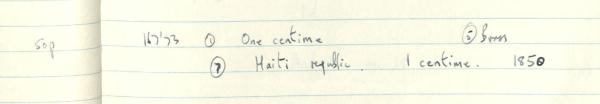 50p 167'73 ① One centime ⑤ Brass
⑦ Haiti republic. 1 centime. 1850